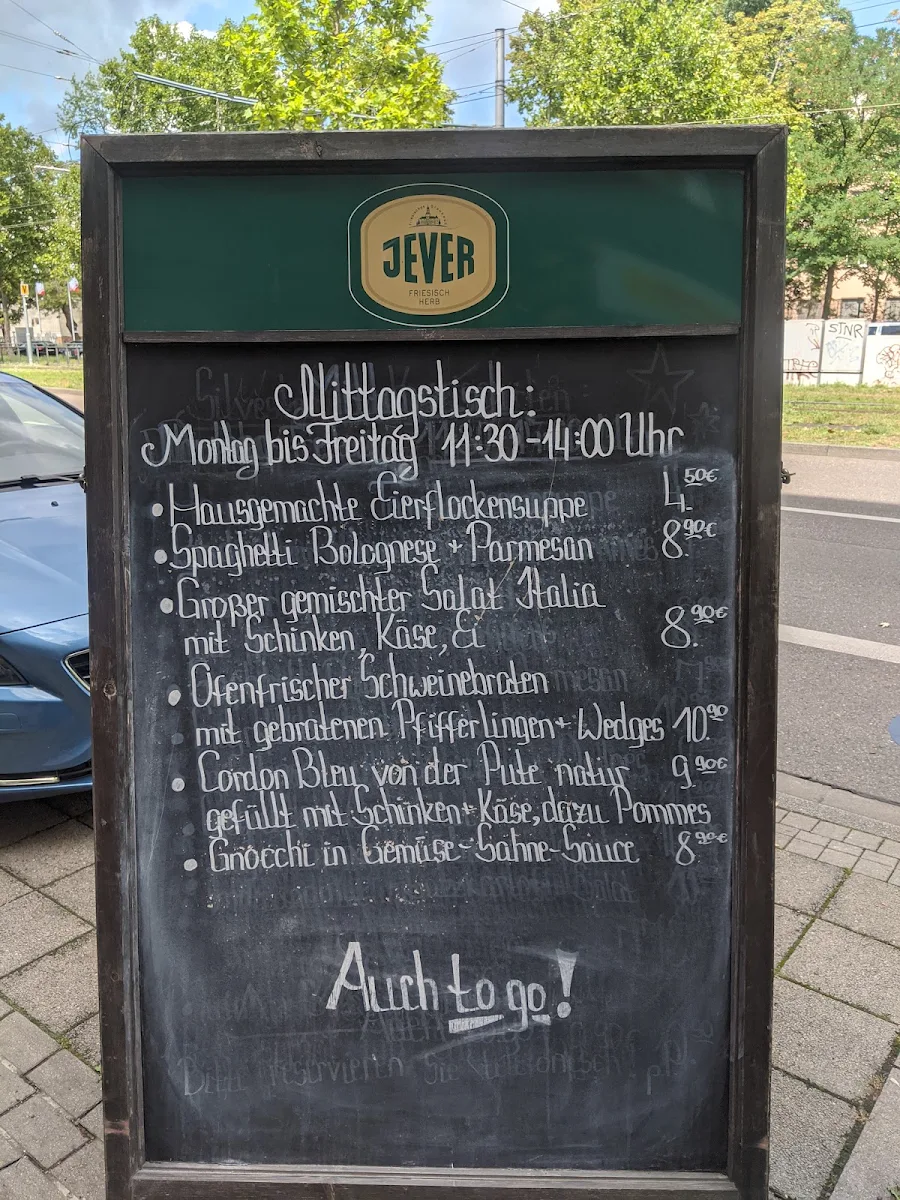 JEVER
FRIESISCH
HERB
Mittagstisch:
Montag bis Freitag 11:30-14:00 Uhr
• Hausgemachte Eierflockensuppe 4.50€
• Spaghetti Bolognese + Parmesan 8.90€
• Großer gemischter Salat Italia
mit Schinken, Käse, Ei 8.90€
• Ofenfrischer Schweinebraten
mit gebratenen Pfifferlingen + Wedges 10.90
• Cordon Bleu von der Pute natur 9.90€
gefüllt mit Schinken + Käse, dazu Pommes
• Gnocchi in Gemüse-Sahne-Sauce 8.90€
Auch to go!
STNR